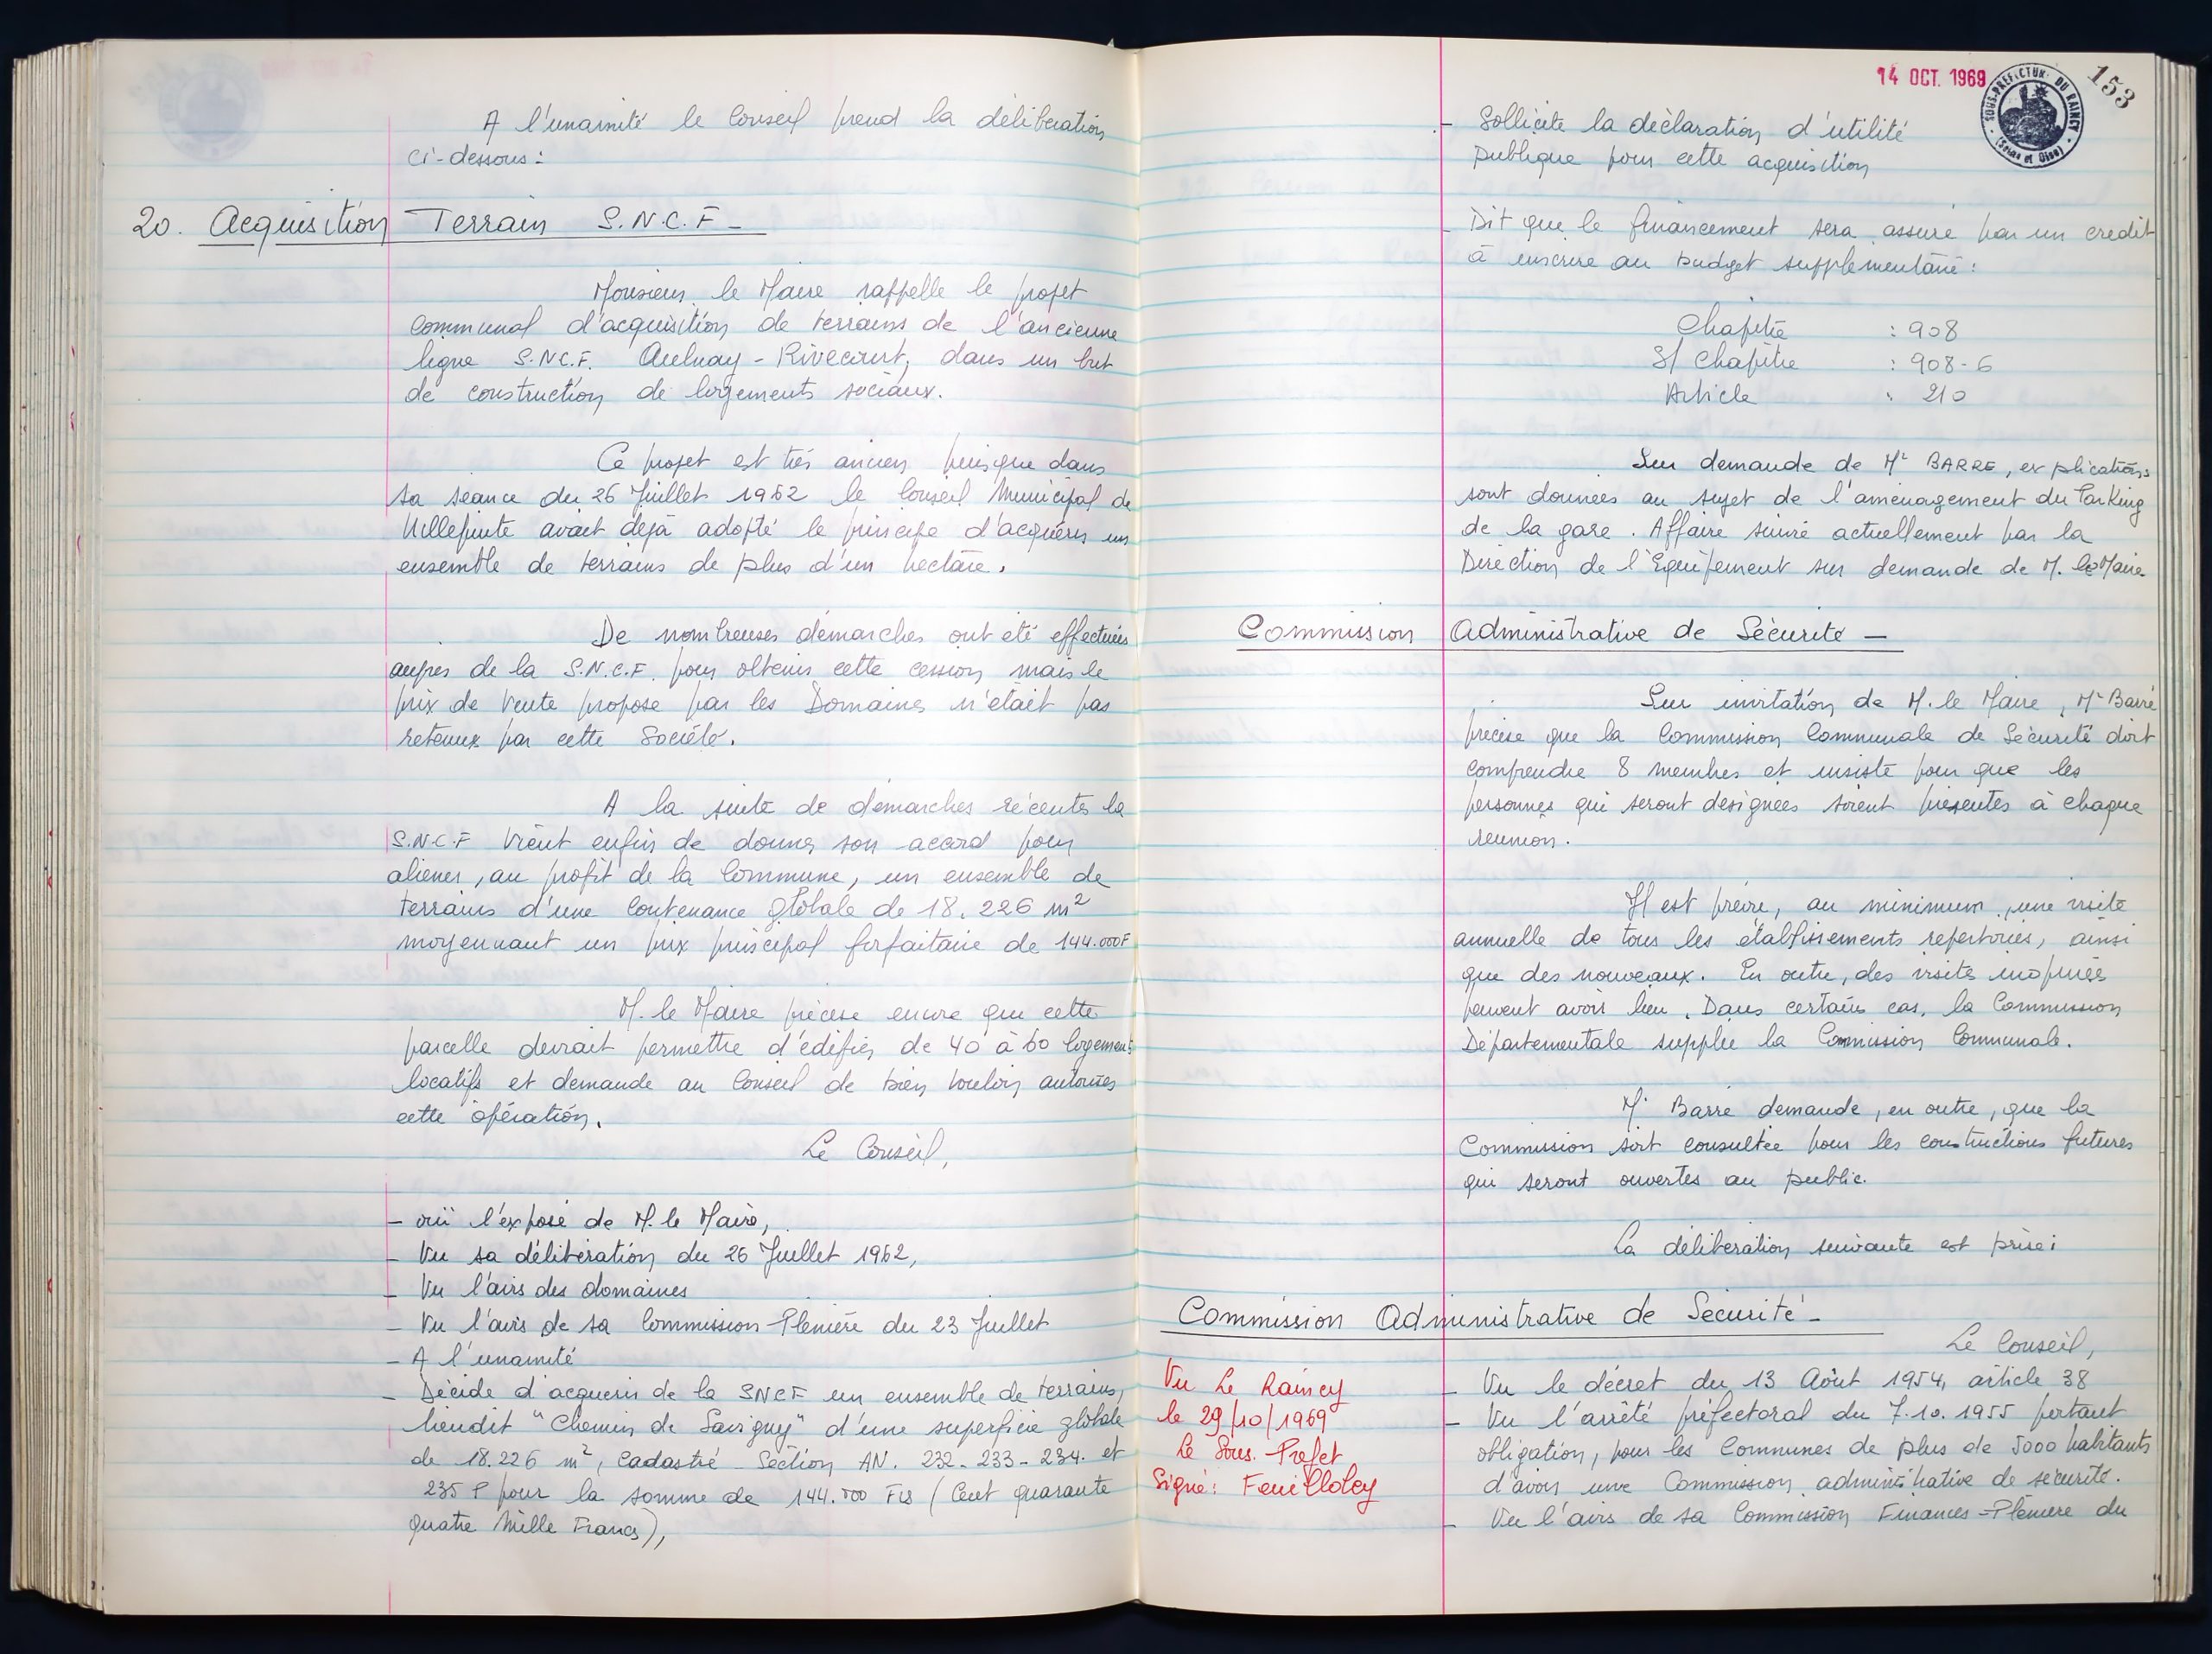 A l'unanimité le Conseil prend la délibération
ci-dessous :
20. Acquisition Terrain S.N.C.F -
Monsieur le Maire rappelle le projet
communal d'acquisition de terrains de l'ancienne
ligne S.N.C.F. Aulnay - Rivecourt, dans un but
de construction de logements sociaux.
Ce projet est très ancien puisque dans
sa séance du 26 Juillet 1962 le Conseil Municipal de
Villepinte avait déjà adopté le principe d'acquérir un
ensemble de terrains de plus d'un hectare.
De nombreuses démarches ont été effectuées
auprès de la S.N.C.F. pour obtenir cette cession mais le
prix de vente proposé par les Domaines n'était pas
retenu par cette Société.
A la suite de démarches récentes la
S.N.C.F vient enfin de donner son accord pour
aliéner, au profit de la Commune, un ensemble de
terrains d'une contenance globale de 18.226 m²
moyennant un prix principal forfaitaire de 144.000F
M. le Maire précise encore que cette
parcelle devrait permettre d'édifier de 40 à 60 logements
locatifs et demande au Conseil de bien vouloir autoriser
cette opération.
Le Conseil,
- ouï l'exposé de M. le Maire,
- Vu sa délibération du 26 Juillet 1962,
- Vu l'avis des domaines
- Vu l'avis de sa Commission Plénière du 23 Juillet
- A l'unanimité
- Décide d'acquérir de la SNCF un ensemble de terrains,
lieudit "Chemin de Savigny" d'une superficie globale
de 18.226 m², Cadastré Section AN. 232 - 233 - 234. et
235 P pour la somme de 144.000 Frs (Cent quarante
quatre Mille Francs),
14 OCT. 1969
SOUS-PRÉFECTURE DU RAINCY
(Seine et Oise)
153
- Sollicite la déclaration d'utilité
publique pour cette acquisition
- Dit que le financement sera assuré par un crédit
à inscrire au budget supplémentaire :
Chapitre : 908
S/ Chapitre : 908-6
Article : 210
Sur demande de Mr BARRE, explications
sont données au sujet de l'aménagement du Parking
de la gare. Affaire suivie actuellement par la
Direction de l'Equipement sur demande de M. le Maire
Commission Administrative de Sécurité -
Sur invitation de M. le Maire, Mr Barré
précise que la Commission Communale de Sécurité doit
comprendre 8 membres et insiste pour que les
personnes qui seront désignées soient présentes à chaque
réunion.
Il est prévu, au minimum, une visite
annuelle de tous les établissements répertoriés, ainsi
que des nouveaux. En outre, des visites inopinées
peuvent avoir lieu. Dans certains cas, la Commission
Départementale supplée la Commission Communale.
Mr Barré demande, en outre, que la
Commission soit consultée pour les constructions futures
qui seront ouvertes au public.
La délibération suivante est prise :
Commission Administrative de Sécurité -
Le Conseil,
Vu Le Raincy
le 29/10/1969
Le Sous-Préfet
Signé : Feuilloley
- Vu le décret du 13 Août 1954, article 38
- Vu l'arrêté préfectoral du 7.10.1955 portant
obligation, pour les Communes de plus de 5000 habitants
d'avoir une Commission administrative de sécurité.
- Vu l'avis de sa Commission Finances-Plénière du